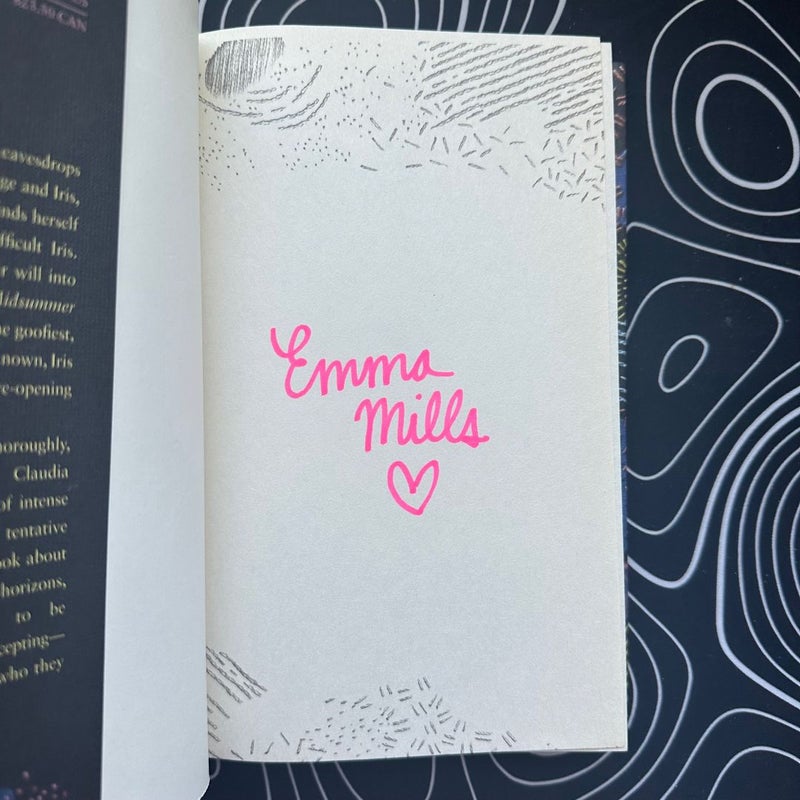 $23.50 CAN
eavesdrops
ge and Iris,
nds herself
fficult Iris.
r will into
Midsummer
e goofiest,
nown, Iris
re-opening
horoughly,
Claudia
of intense
tentative
ook about
horizons,
to be
cepting—
who they
Emma
Mills